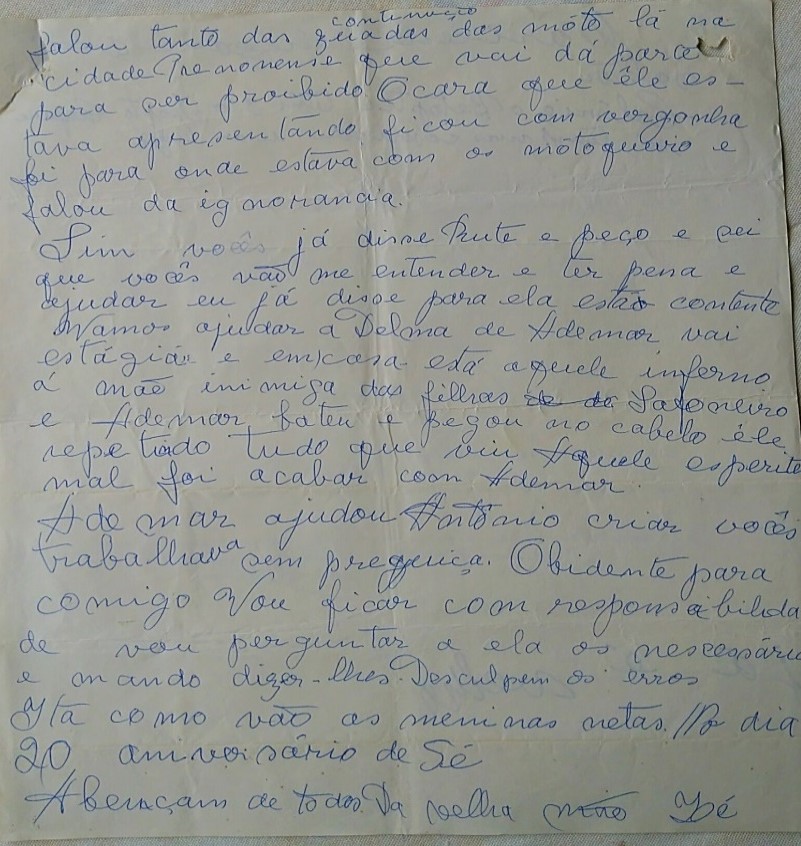 continuação
falou tanto das zuadas das móto lá na
cidade Tremonense que vai dá parte
para ser proibido O cara que êle es-
tava apresentando ficou com vergonha
foi para onde estáva com os mótoqueiro e
falou da ignorancia.
Sim vocês já disse Rute e peço e sei
que vocês vão me entender e ter pena e
ajudar eu já disse para ela estão contente
Vamos ajudar a Delma de Ademar vai
estágiar e em casa está aquele inferno
á mãe inimiga das filhas
e Ademar bateu e pegou no cabelo êle
repetindo tudo que viu Aquele esperito
mal foi acabar com Ademar.
Ademar ajudou Antônio criar vocês
trabalhava sem preguiça. Obidente para
comigo Vou ficar com responsabilida
de vou perguntar a ela os nescessário
e mando dizer-lhes. Desculpem os erros
Itá como vão as meninas netas. // Dia
20 aniversário de Sé
Abençam de todos. Da velha mãe Zé